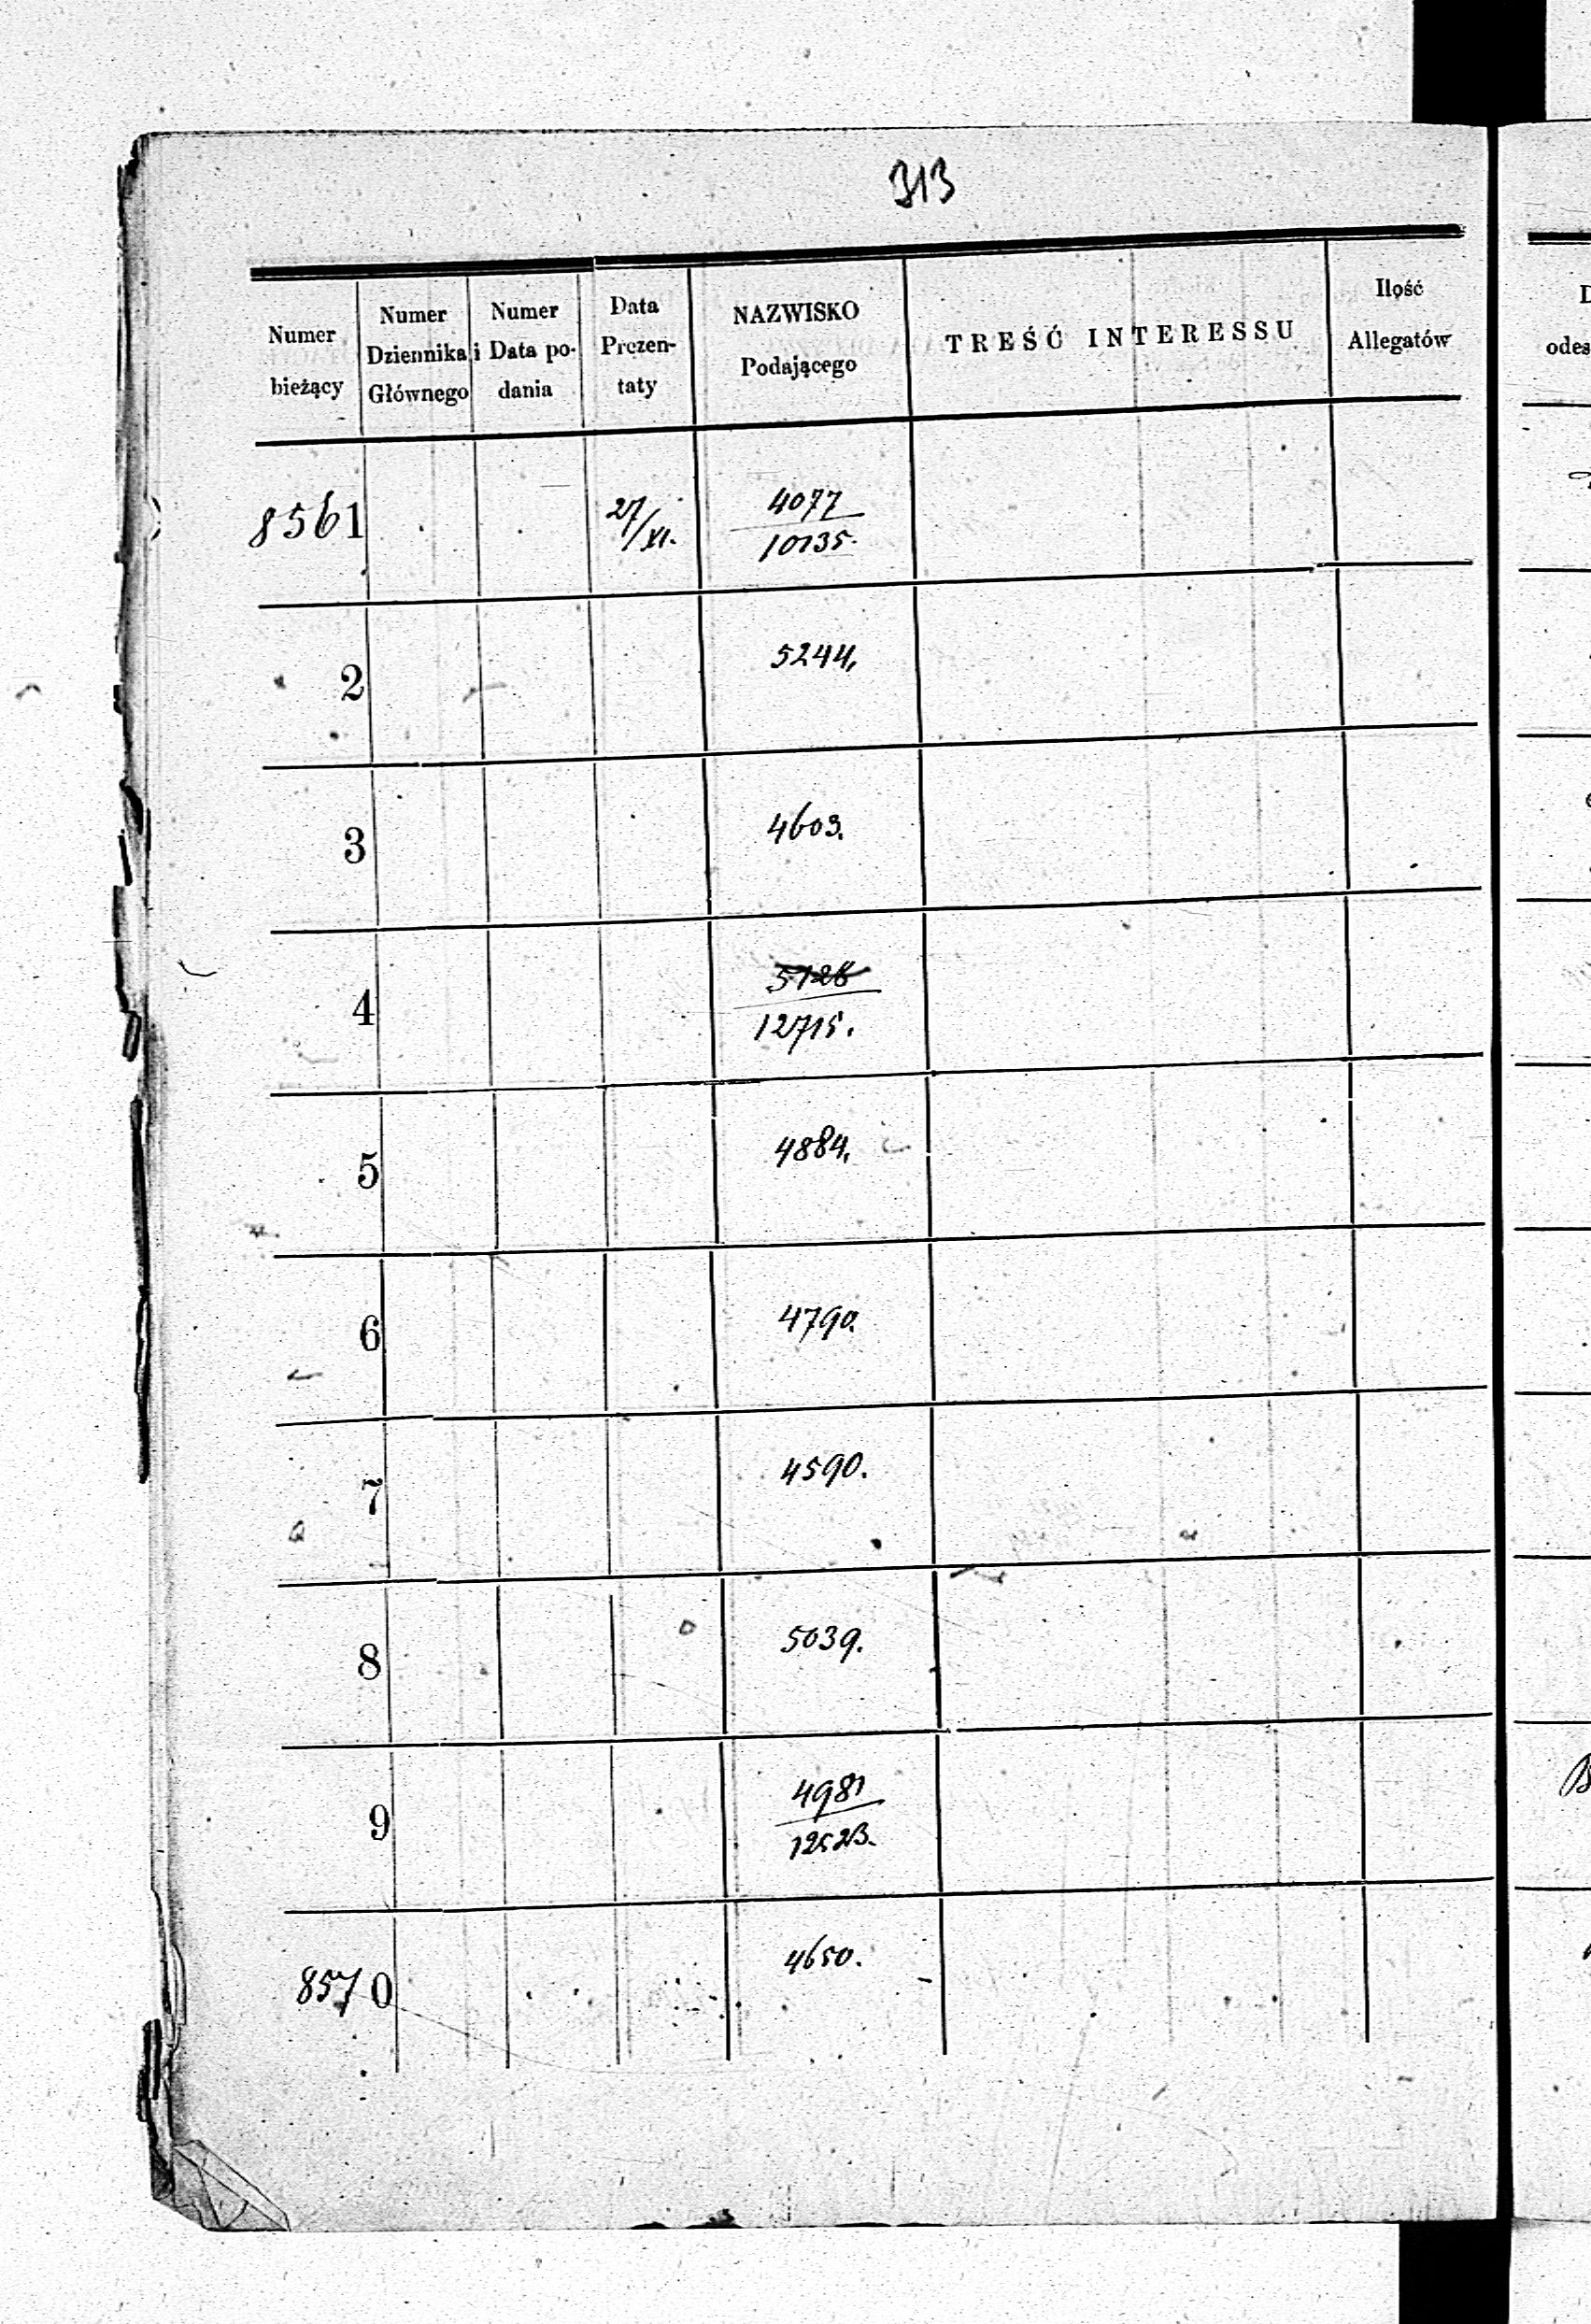 313
Numer bieżący
Numer Dziennika Głównego
Numer i Data podania
Data Prezentaty
NAZWISKO Podającego
TREŚĆ INTERESSU
Ilość Allegatów
8561 27/XI. 4077
10135.
2 5244,
3 4603.
4 5128
12715.
5 4884,
6 4790.
7 4590.
8 5039.
9 4981
12523.
8570 4650.